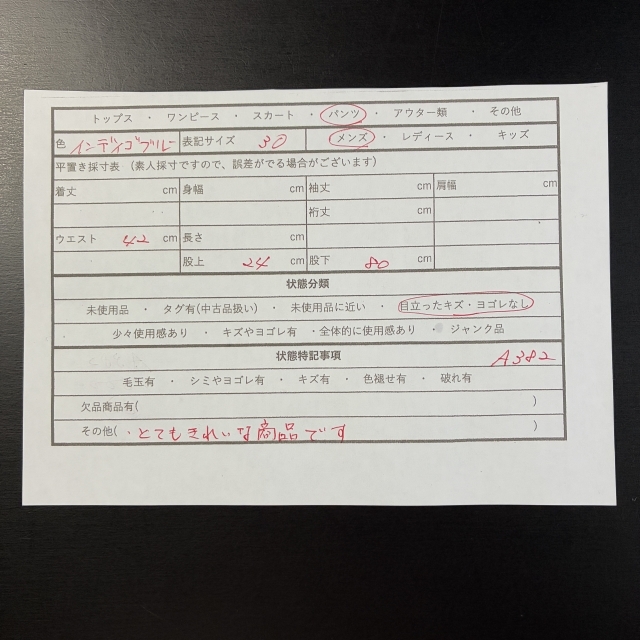 トップス ・ ワンピース ・ スカート ・ パンツ ・ アウター類 ・ その他
色 インディゴブルー 表記サイズ 30 メンズ ・ レディース ・ キッズ
平置き採寸表 (素人採寸ですので、誤差がでる場合がございます)
着丈 cm 身幅 cm 袖丈 cm 肩幅 cm
裄丈 cm
ウエスト 42 cm 長さ cm
股上 24 cm 股下 80 cm
状態分類
未使用品 ・ タグ有(中古品扱い) ・ 未使用品に近い ・ 目立ったキズ・ヨゴレなし
少々使用感あり ・ キズやヨゴレ有 ・全体的に使用感あり ・ ジャンク品
状態特記事項 A382
毛玉有 ・ シミやヨゴレ有 ・ キズ有 ・ 色褪せ有 ・ 破れ有
欠品商品有( )
その他( ・とてもきれいな商品です )